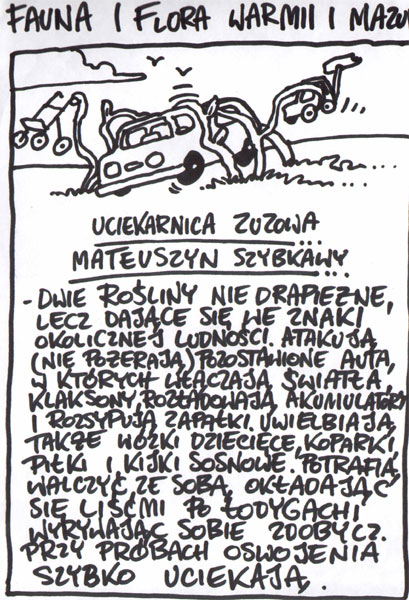 FAUNA I FLORA WARMII I MAZU
UCIEKARNICA ZUZOWA
MATEUSZYN SZYBKAWY
- DWIE ROŚLINY NIE DRAPIEŻNE,
LECZ DAJĄCE SIĘ WE ZNAKI
OKOLICZNEJ LUDNOŚCI. ATAKUJĄ
(NIE POŻERAJĄ) POZOSTAWIONE AUTA,
W KTÓRYCH WŁĄCZAJĄ ŚWIATŁA,
KLAKSONY, ROZŁADOWAJĄ AKUMULATORY
I ROZSYPUJĄ ZAPAŁKI. UWIELBIAJĄ
TAKŻE WÓZKI DZIECIĘCE, KOPARKI,
PIŁKI I KIJKI SOSNOWE. POTRAFIĄ
WALCZYĆ ZE SOBĄ, OKŁADAJĄC
SIĘ LIŚĆMI PO ŁODYGACH I
WYRYWAJĄC SOBIE ZDOBYCZ.
PRZY PRÓBACH OSWOJENIA
SZYBKO UCIEKAJĄ.